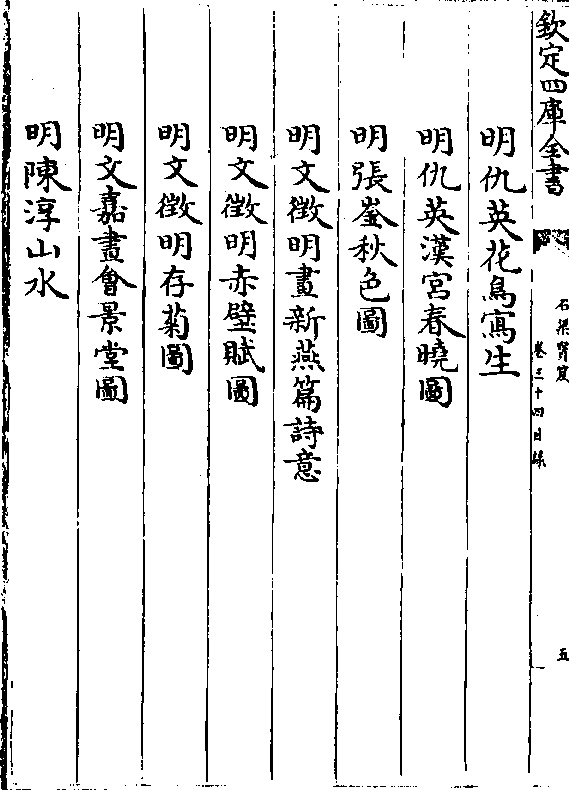 欽定四庫全書
石渠寶笈
卷三十四目録
五
明仇英花鳥寫生
明仇英漢宮春曉圖
明張崟秋色圖
明文徴明畫新燕篇詩意
明文徴明赤壁賦圖
明文徴明存菊圖
明文嘉畫會景堂圖
明陳淳山水